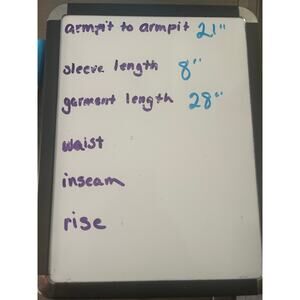 armpit to armpit 21"
sleeve length 8"
garment length 28"
waist
inseam
rise